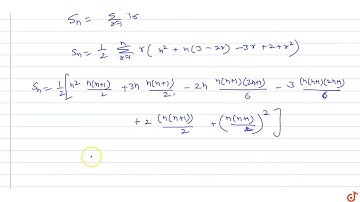 Sₙ = Σ r=1 tr
Sₙ = 1/2 Σ r=1 n r ( n² + n(3 - 2r) - 3r + 2 + r² )
Sₙ = 1/2 [ n² n(n+1)/2 + 3n n(n+1)/2 - 2n n(n+1)(2n+1)/6 - 3 (n(n+1)(2n+1))/6
+ 2 (n(n+1))/2 + (n(n+1)/2)² ]